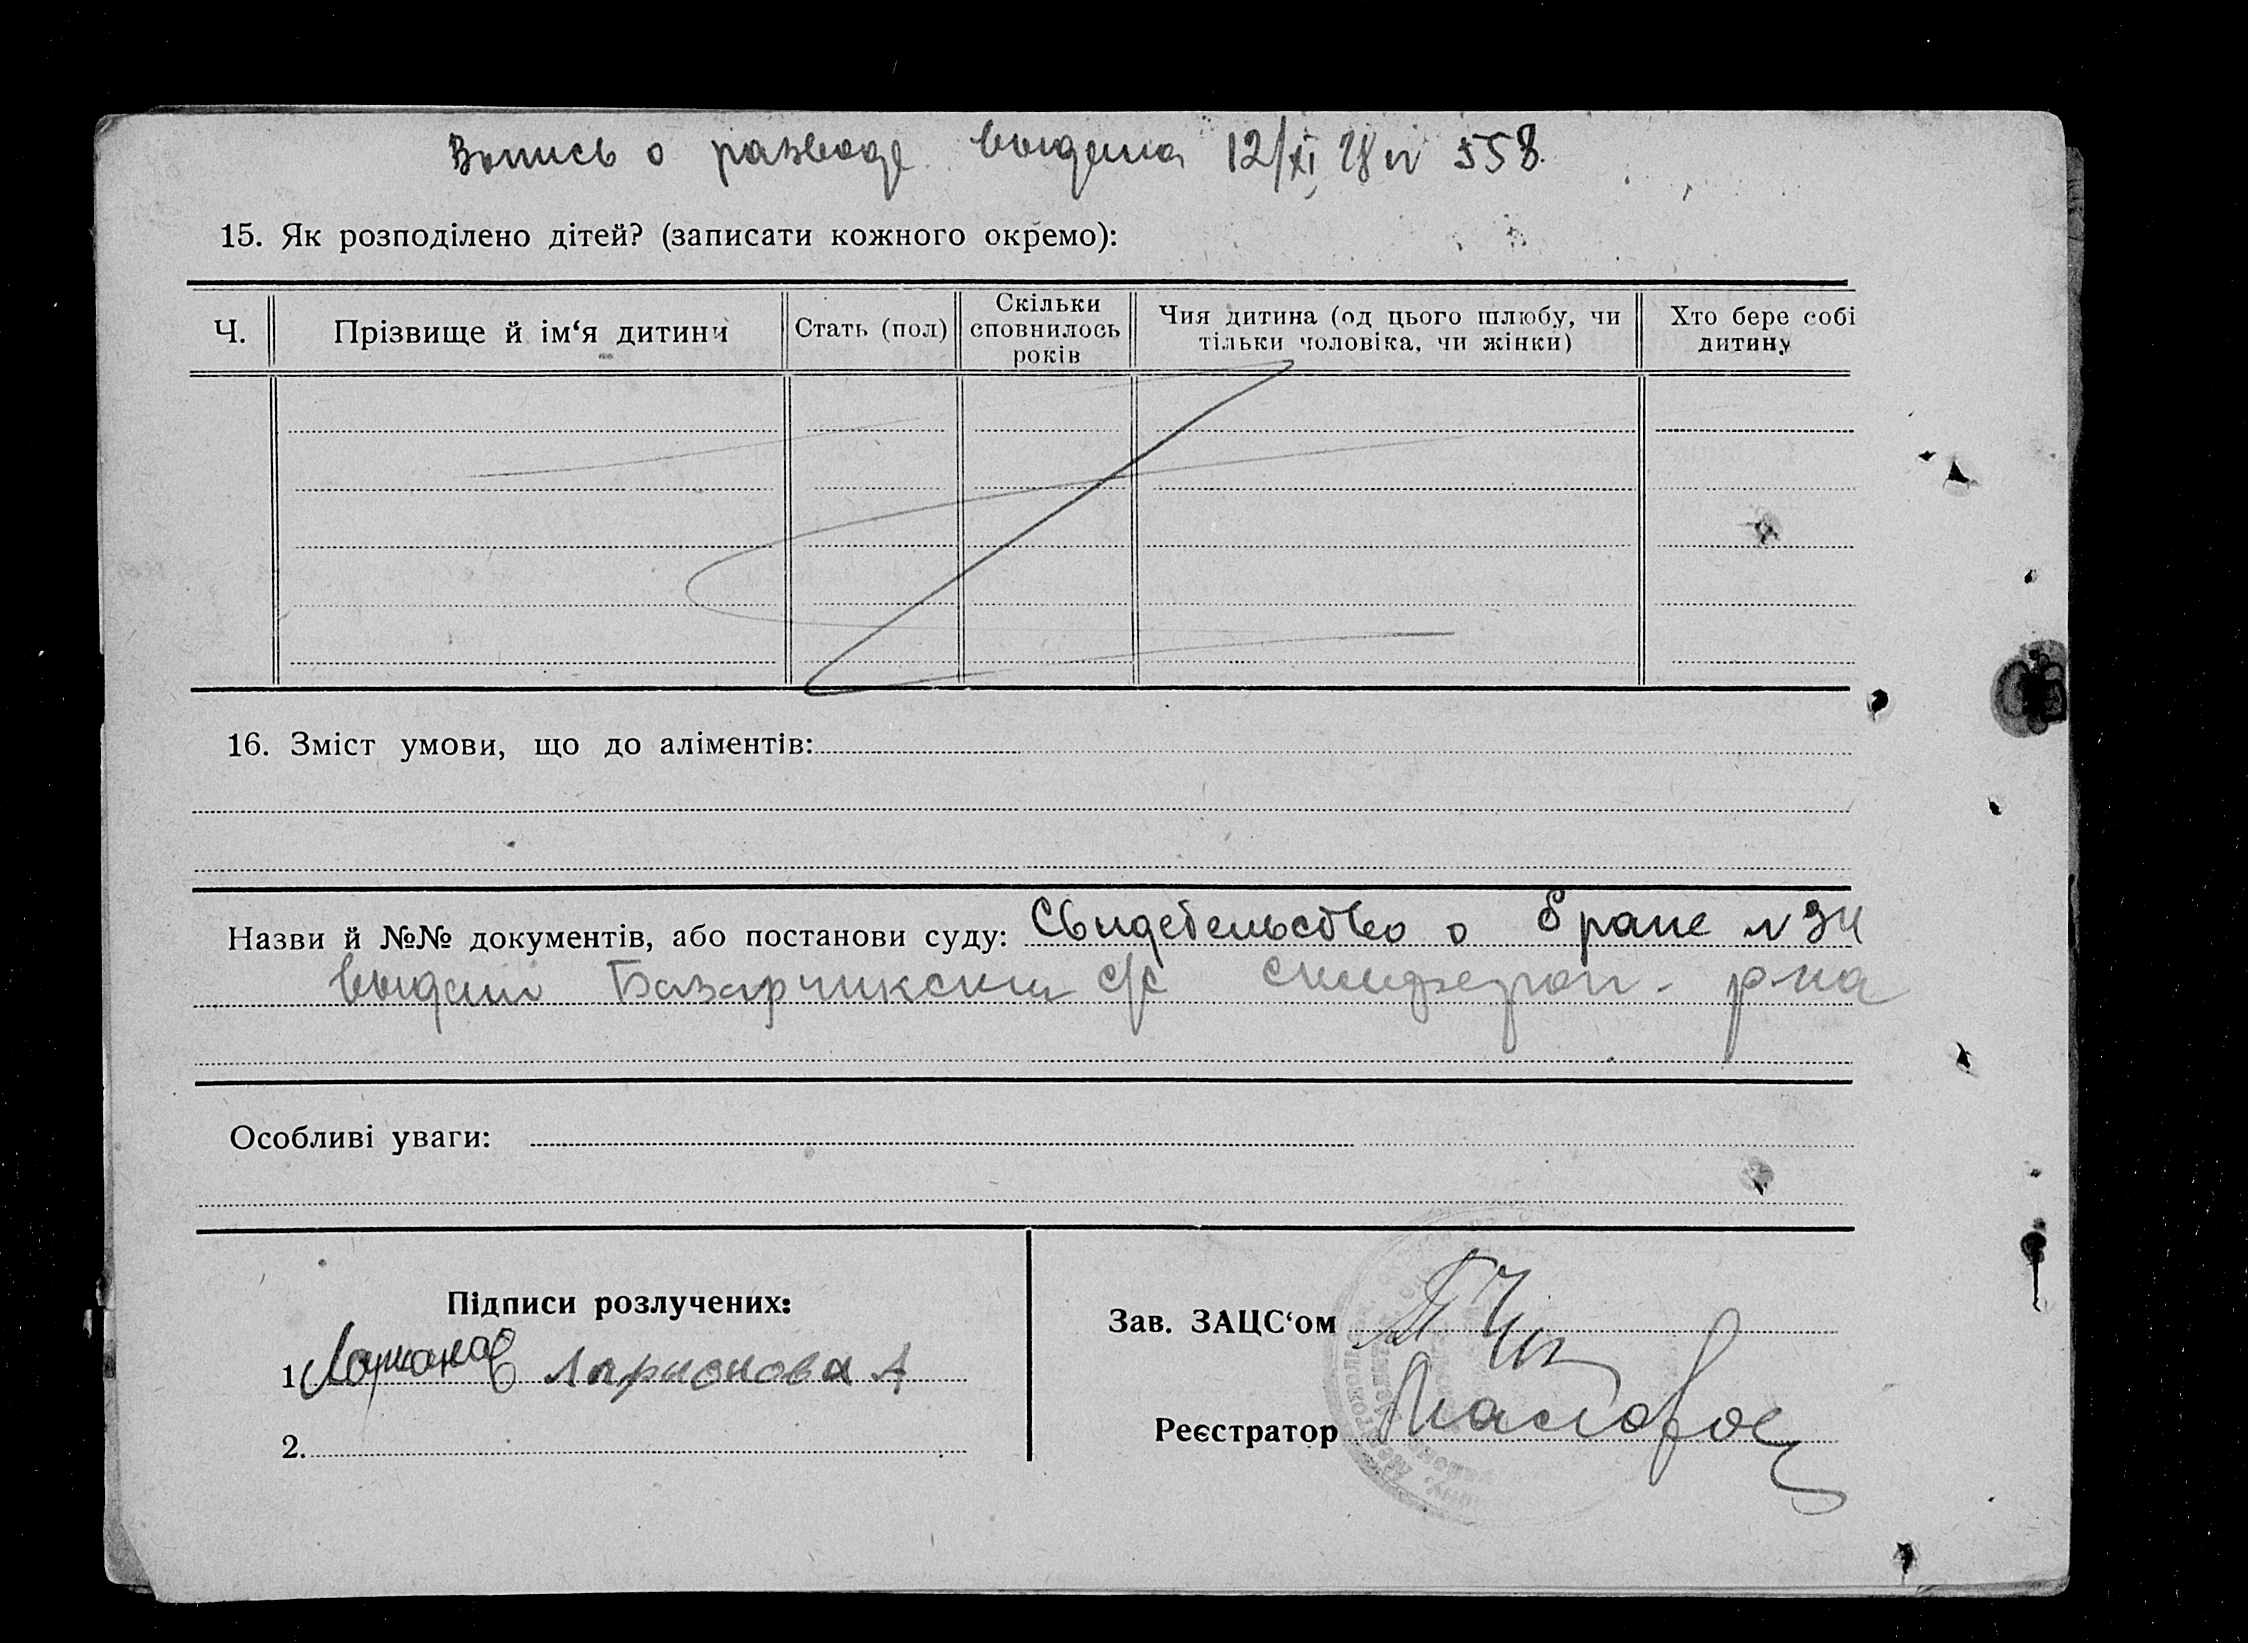 Выпись о разводе выдана 12/XI 28 N 558.
15. Як розподілено дітей? (записати кожного окремо):
Ч.
Прізвище й ім‘я дитини
Стать (пол)
Скільки
сповнилось
років
Чия дитина (од цього шлюбу, чи
тільки чоловіка, чи жінки)
Хто бере собі
дитину
16. Зміст умови, що до аліментів:
Назви й №№ документів, або постанови суду: Свидетельство о браке N 34
выдан Базарчикским с/с Симфероп. р-на
Особливі уваги:
Підписи розлучених:
1. Ларионов Ларионова А
2.
Зав. ЗАЦС‘ом
Реєстратор